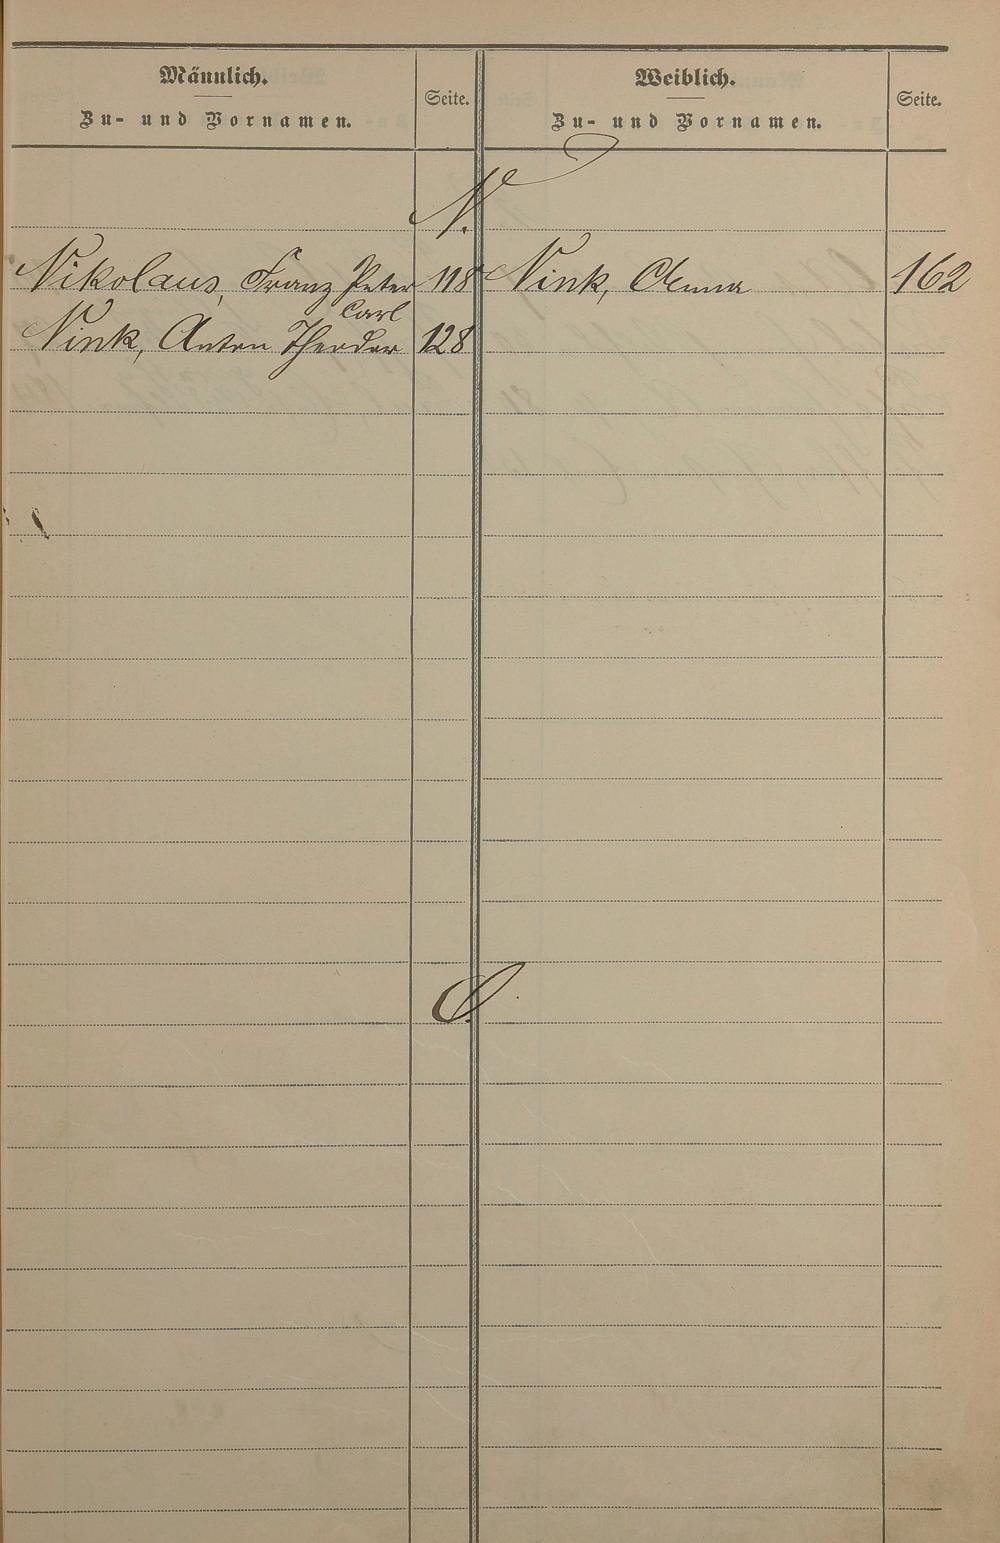 Männlich.
Zu- und Vornamen.
Seite.
Weiblich.
Zu- und Vornamen.
Seite.
N.
Nikolaus, Franz Peter 118
Nink, Anna 162
Carl
Nink, Anton Theodor 128
O.